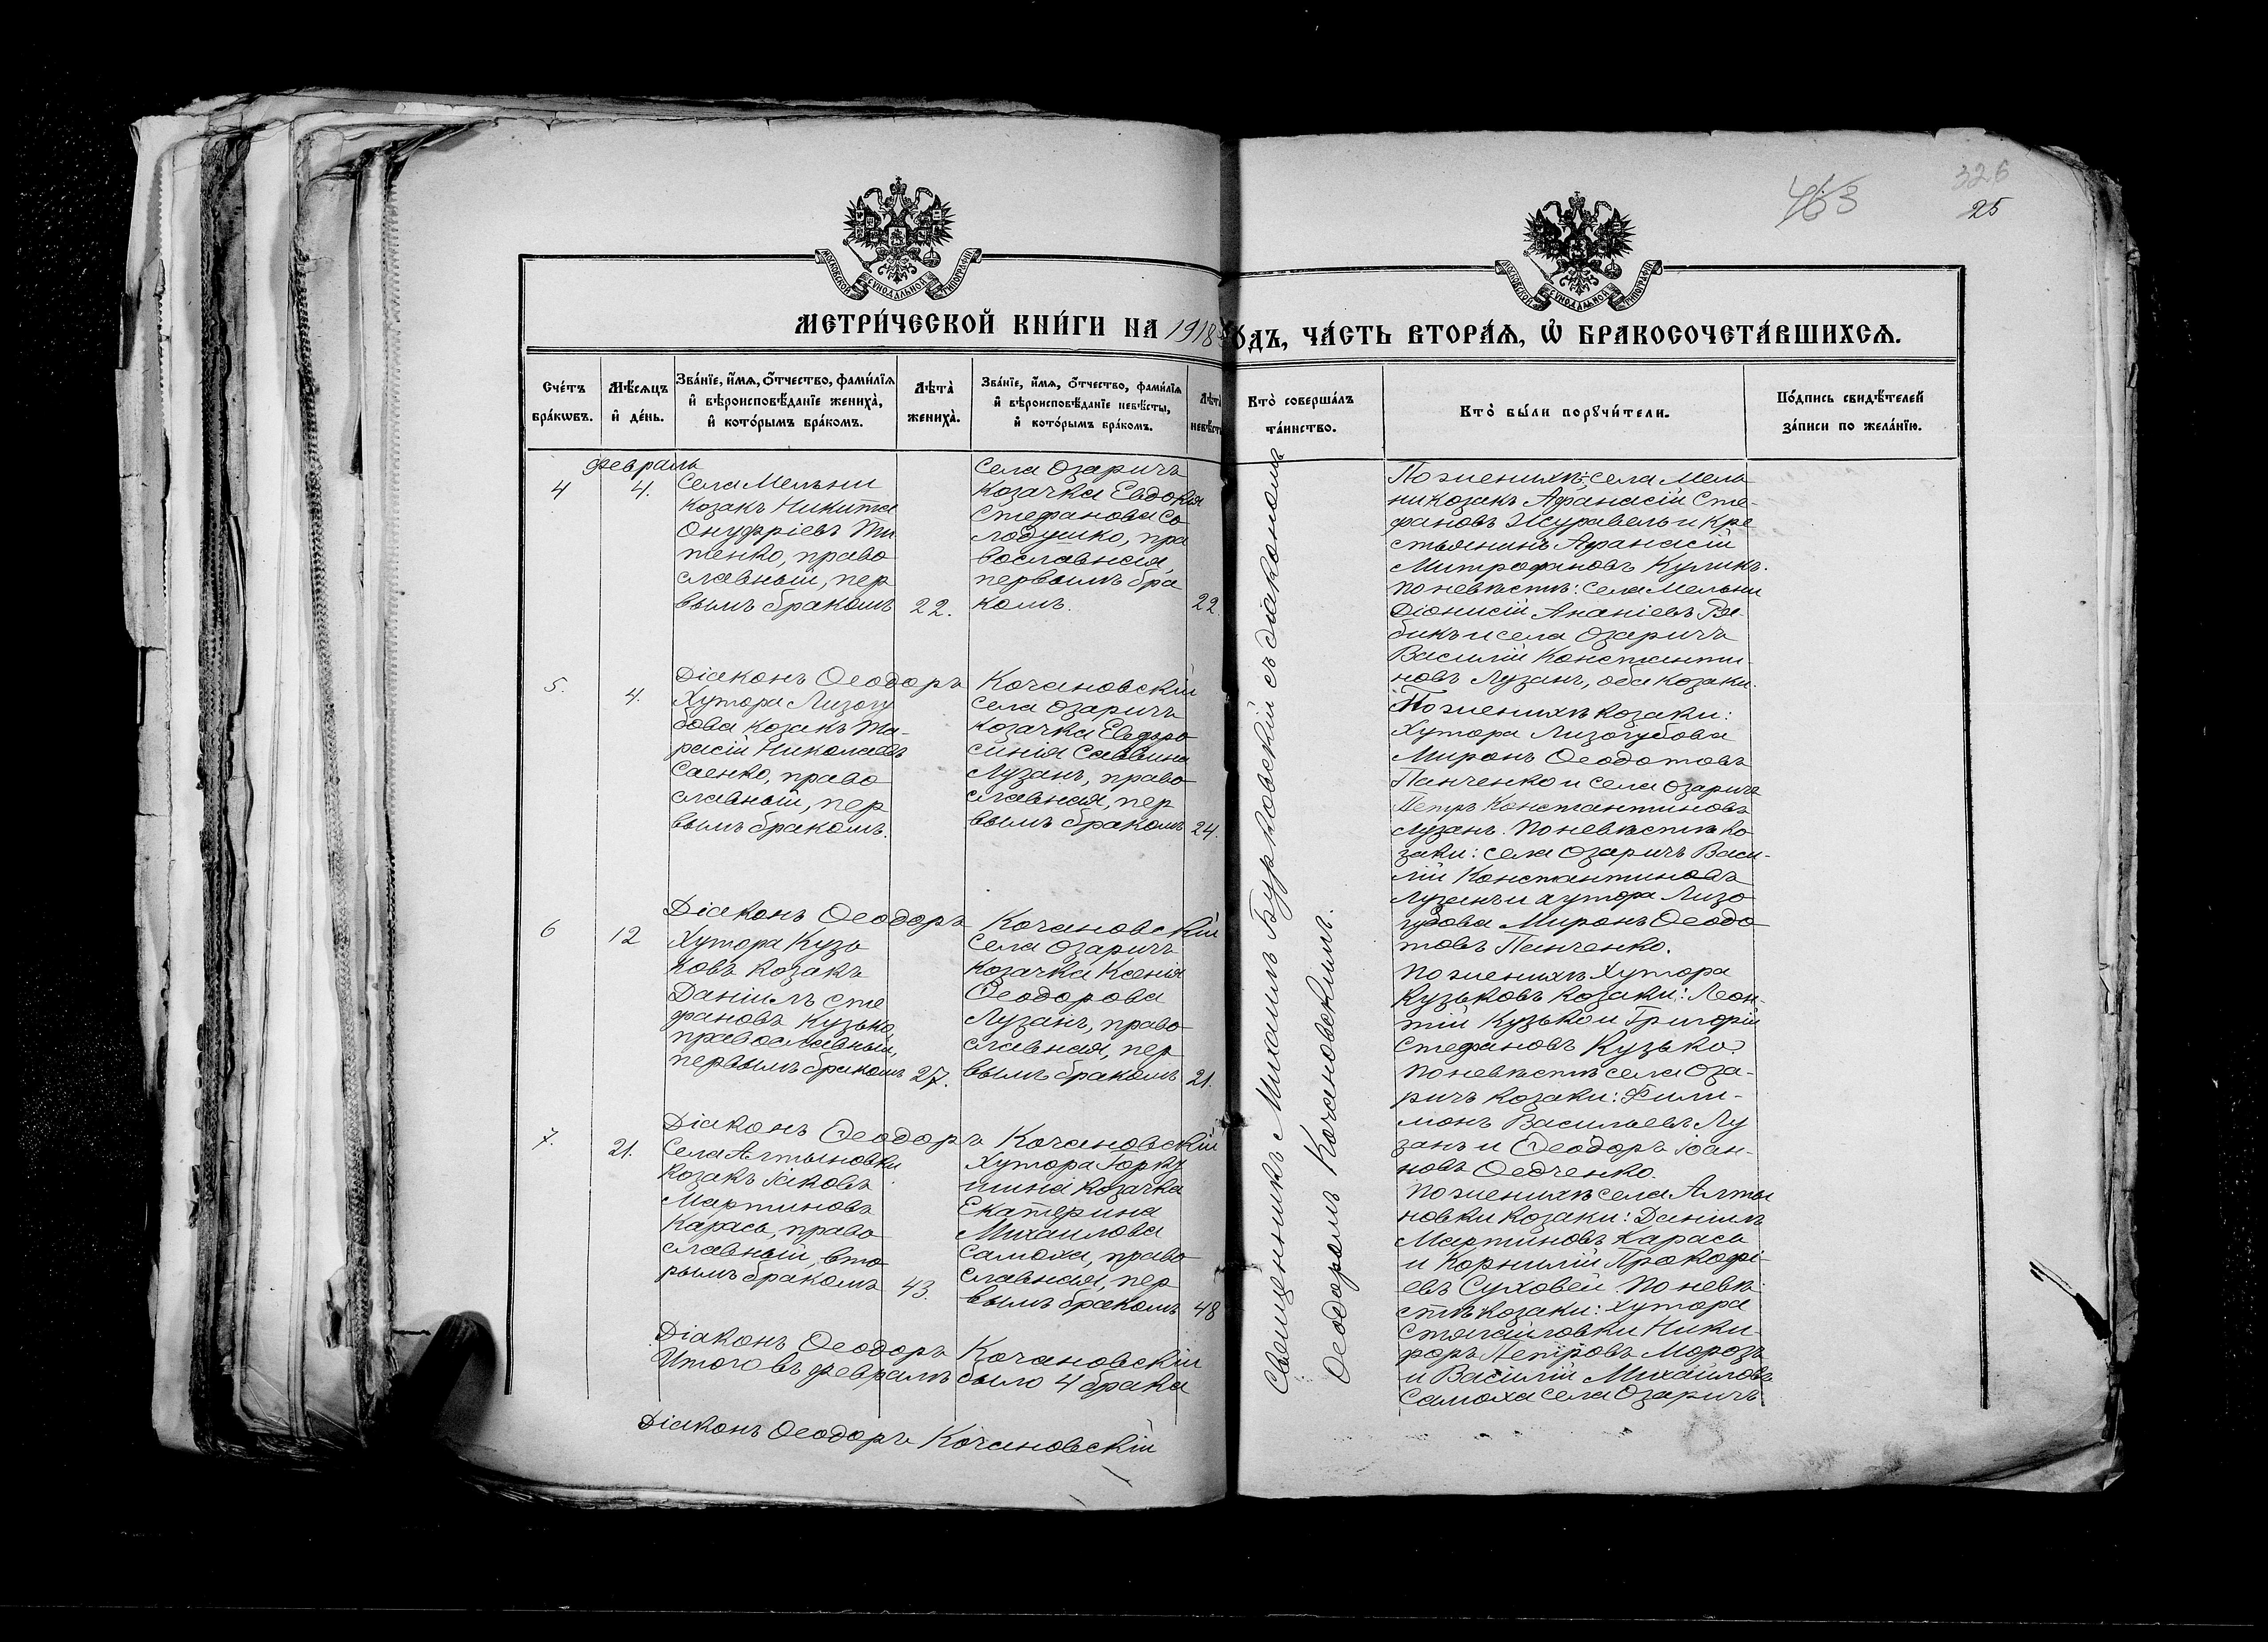 463
326
25
МОСКОВСКОЙ СѴНОДАЛЬНОЙ ТИПОГРАФІИ
МОСКОВСКОЙ СѴНОДАЛЬНОЙ ТИПОГРАФІИ
МЕТРИ́ЧЕСКОЙ КНИ́ГИ НА 1918 ГОДЪ, ЧА́СТЬ ВТОРА́Ѧ, Ѽ БРАКОСОЧЕТА́ВШИХСѦ.
Сче́тъ бра́кѡвъ.
Мѣ́сяцъ и҆ де́нь.
Зва́нїе, и҆́мѧ, о҆́тчество, фами́лїѧ
и҆ вѣроисповѣ́данїе жениха̀,
и҆ кото́рымъ бра́комъ.
Лѣта̀
жениха̀.
Зва́нїе, и҆́мѧ, о҆́тчество, фами́лїѧ
и҆ вѣроисповѣ́данїе невѣ́сты,
и҆ кото́рымъ бра́комъ.
Лѣта̀
невѣ́сты
Кто̀ соверша́лъ
та́инство.
Кто̀ бы́ли порꙋчи́тели.
По́дпись свидѣ́телей
за́писи по жела́нїю.
февраль
4
4.
Села Мельни
козакъ Никита
Онуфріевъ Ти
тенко, право
славный, пер
вымъ бракомъ
22.
Села Озаричъ
козачка Евдокія
Стефанова Со
лодушко, пра
вославная,
первымъ бра
комъ.
22
По женихѣ: села Мель
ни козакъ Афанасій Сте-
фановъ Журавель и кре
стьянинъ Афанасій
Митрофановъ Куликъ.
по невѣстѣ: села Мельни
Діонисій Ананіевъ Ря-
бикъ и села Озаричъ
Василій Константи-
новъ Лузанъ, оба козаки.
Діаконъ Ѳеодоръ Кочановскій
5.
4.
Хутора Лизогу
бова козакъ Та-
расій Николаевъ
Саенко, право
славный, пер
вымъ бракомъ.
Села Озаричъ
козачка Евфро
синія Саввина
Лузанъ, право
славная, пер
вымъ бракомъ
24.
По женихѣ козаки:
Хутора Лизогубова
Миронъ Ѳеодотовъ
Панченко и села Озаричъ
Петръ Константиновъ
Лузанъ. По невѣстѣ ко
заки: села Озаричъ Васи-
лій Константиновъ
Лузанъ и хутора Лизо
губова Миронъ Ѳеодо
товъ Панченко.
Діаконъ Ѳеодоръ Кочановскій
6
12
Хутора Кузь
ковъ козакъ
Даніилъ Сте
фановъ Кузько,
православный,
первымъ бракомъ
27.
Села Озаричъ
козачка Ксенія
Ѳеодорова
Лузанъ, право
славная, пер
вымъ бракомъ
21.
По женихѣ Хутора
Кузьковъ козаки: Леон-
тій Кузько и Григорій
Стефановъ Кузько.
По невѣстѣ села Оза-
ричъ козаки: Фили-
монъ Васильевъ Лу
занъ и Ѳеодоръ Іоан-
новъ Ѳедченко.
Діаконъ Ѳеодоръ Кочановскій
7.
21.
Села Алтыновки
козакъ Іаковъ
Мартиновъ
Карась, право
славный, вто
рымъ бракомъ
43.
Хутора
козачка
Екатерина
Михаилова
Самоха, право
славная, пер
вымъ бракомъ
48
По женихѣ села Алты
новки козаки: Даніилъ
Мартиновъ Карась
и Корнилій Прокофі-
евъ Суховей. По невѣ-
стѣ козаки: Хутора
Ники-
форъ Петровъ Морозъ
и Василій Михаиловъ
Самоха села Озаричъ.
Діаконъ Ѳеодоръ Кочановскій
Итого въ февралѣ было 4 брака
Діаконъ Ѳеодоръ Кочановскій
Священникъ Михаилъ Бурковскій съ діакономъ
Ѳеодоромъ Кочановскимъ.